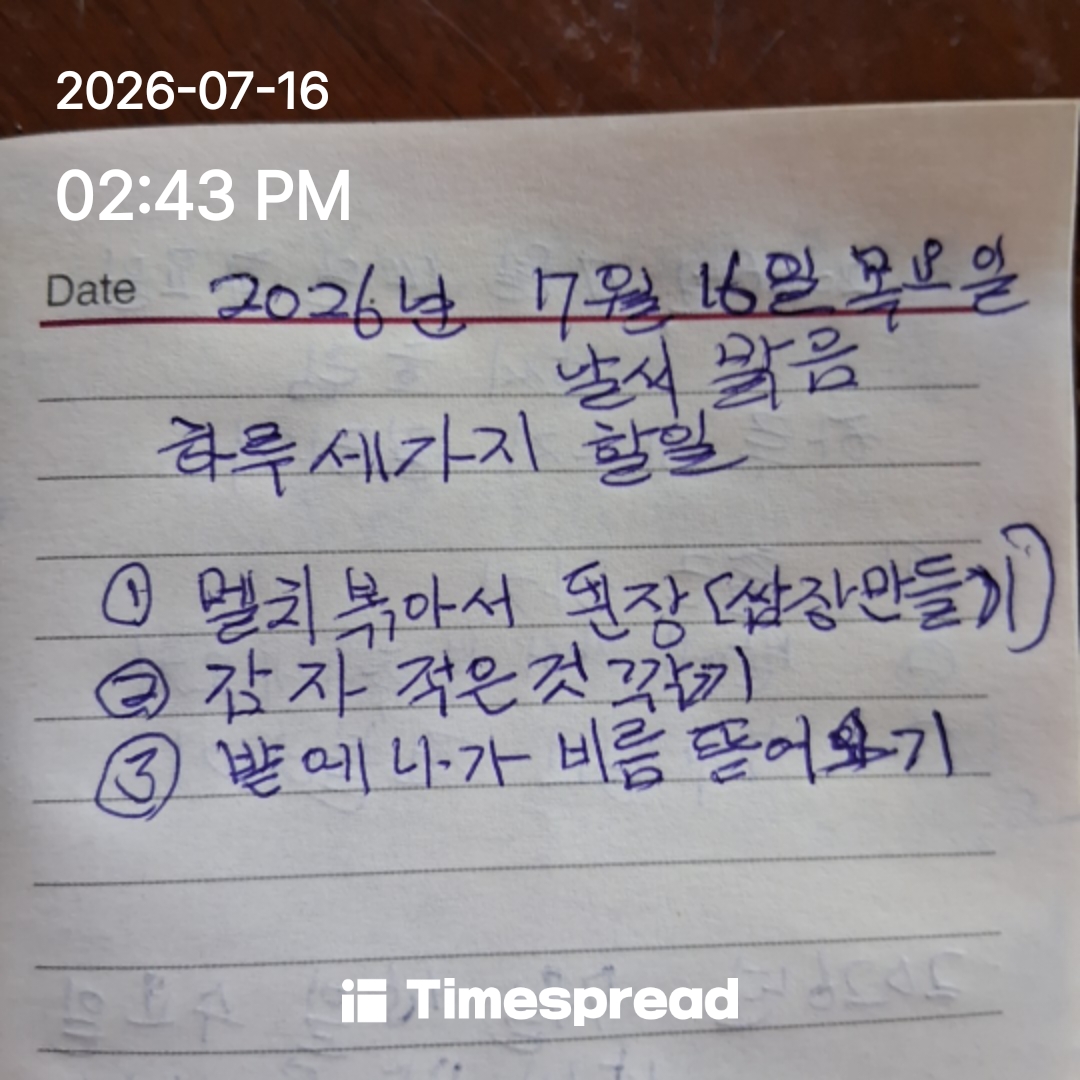 2026-07-16
02:43 PM
Date 2026년 7월 16일 목요일
날씨 맑음
하루 세가지 할일
① 멜치 볶아서 된장(쌈장만들기)
② 감자 적은것 깎기
③ 밭에 나가 비름 뜯어오기
Timespread